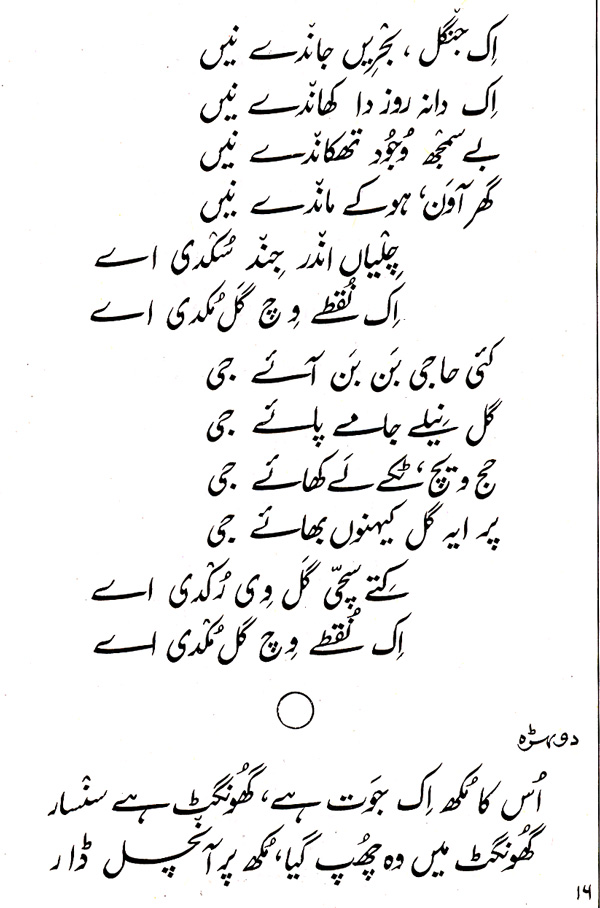 اِک جنگل ، بحریں جاندے نیں
اِک دانہ روز دا کھاندے نیں
بے سمجھ وجُود تھکاندے نیں
گھر آوَن، ہو کے ماندے نیں
چِلّیاں اندر جِند سُکدی اے
اِک نُقطے وِچ گَل مُکدی اے
کئی حاجی بَن بَن آئے جی
گل نِیلے جامے پائے جی
حج ویچ، ٹکے لَے کھائے جی
پر ایہ گل کیہنوں بھائے جی
کِتے سچّی گَل وی رُکدی اے
اِک نُقطے وِچ گَل مُکدی اے
دوہڑہ
اُس کا مُکھ اِک جوَت ہے، گھُونگٹ ہے سنسار
گھُونگٹ میں وہ چھُپ گیا، مُکھ پر آنچل ڈار
١٦